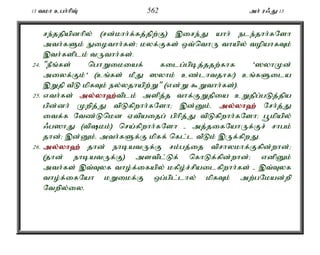 13 வமா உபர்ரிஉ 562 அர் ரஃது 13
சந்ததியினரில் (சன்மார்க்கத்திற்கு) இசைந்து யார் நடந்தார்களோ
அவர்களும் நுழைவார்கள்; மலக்குகள் ஒவ்வொரு வாயில் வழியாகவும்
இவர்களிடம் வருவார்கள்.
24. "நீங்கள் பொறுமையைக் கடைப்பிடித்ததற்காக 'ஸலாமுன்
அலைக்கும்' (உங்கள் மீது ஸலாம் உண்டாவதாக!) உங்களுடைய
இறுதி வீடு மிகவும் நல்லதாயிற்று" (என்று கூறுவார்கள்).
25. எவர்கள் அல்லாஹ்விடம் அளித்த வாக்குறுதியை உறுதிப்படுத்திய
பின்னர் முறித்து விடுகிறார்களோ; இன்னும், அல்லாஹ் சேர்த்து
வைக்க வேண்டுமென ஏவியதைப் பிரித்து விடுகிறார்களோ; பூமியில்
ஃபஸாது (விஷமம்) செய்கிறார்களோ - அத்தகையோருக்குச் சாபம்
தான்; இன்னும் அவர்களுக்கு மிகக் கெட்ட வீடும் இருக்கிறது.
26. அல்லாஹ் தான் நாடியவருக்கு சம்பத்தை விசாலமாக்குகின்றான்;
(தான் நாடியவருக்கு) அளவிட்டுக் கொடுக்கின்றான்; எனினும்
அவர்கள் இவ்வுலக வாழ்க்கையில் மகிழ்ச்சியடைகிறார்கள் - இவ்வுலக
வாழ்க்கையோ மறுமைக்கு ஒப்பிட்டால் மிகவும் அற்பமேயன்றி
வேறில்லை.